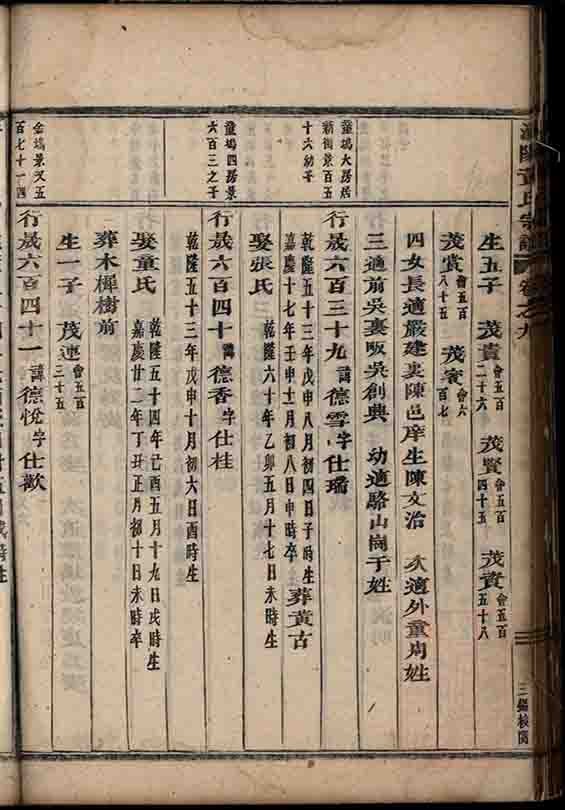 宗譜 卷之九
三錫校閱
生五子 茂貴會五百二十六 茂賢會五百四十五 茂賓會五百五十八
茂賞會五百八十五 茂寀會六百七
四女長適嚴建裏陳邑庠生陳文治 次適外童周姓
三適前吳裏畈吳創典 幼適駱山崗于姓
童塢大房居新街景百五十六幼子
行晟六百三十九 諱德雪字仕璠
乾隆五十三年戊申八月初四日子時生
嘉慶十七年壬申十一月初八日申時卒 葬黃古
娶張氏 乾隆六十年乙卯五月十七日未時生
童塢四房景六百三之子
行晟六百四十 諱德香字仕桂
乾隆五十三年戊申十月初六日酉時生
娶童氏 乾隆五十四年己酉五月十九日戌時生
嘉慶廿二年丁丑正月初十日未時卒
葬木樨樹前
生一子 茂連會五百三十五
金塢景又五百七十一四
行晟六百四十一 諱德悅字仕歡